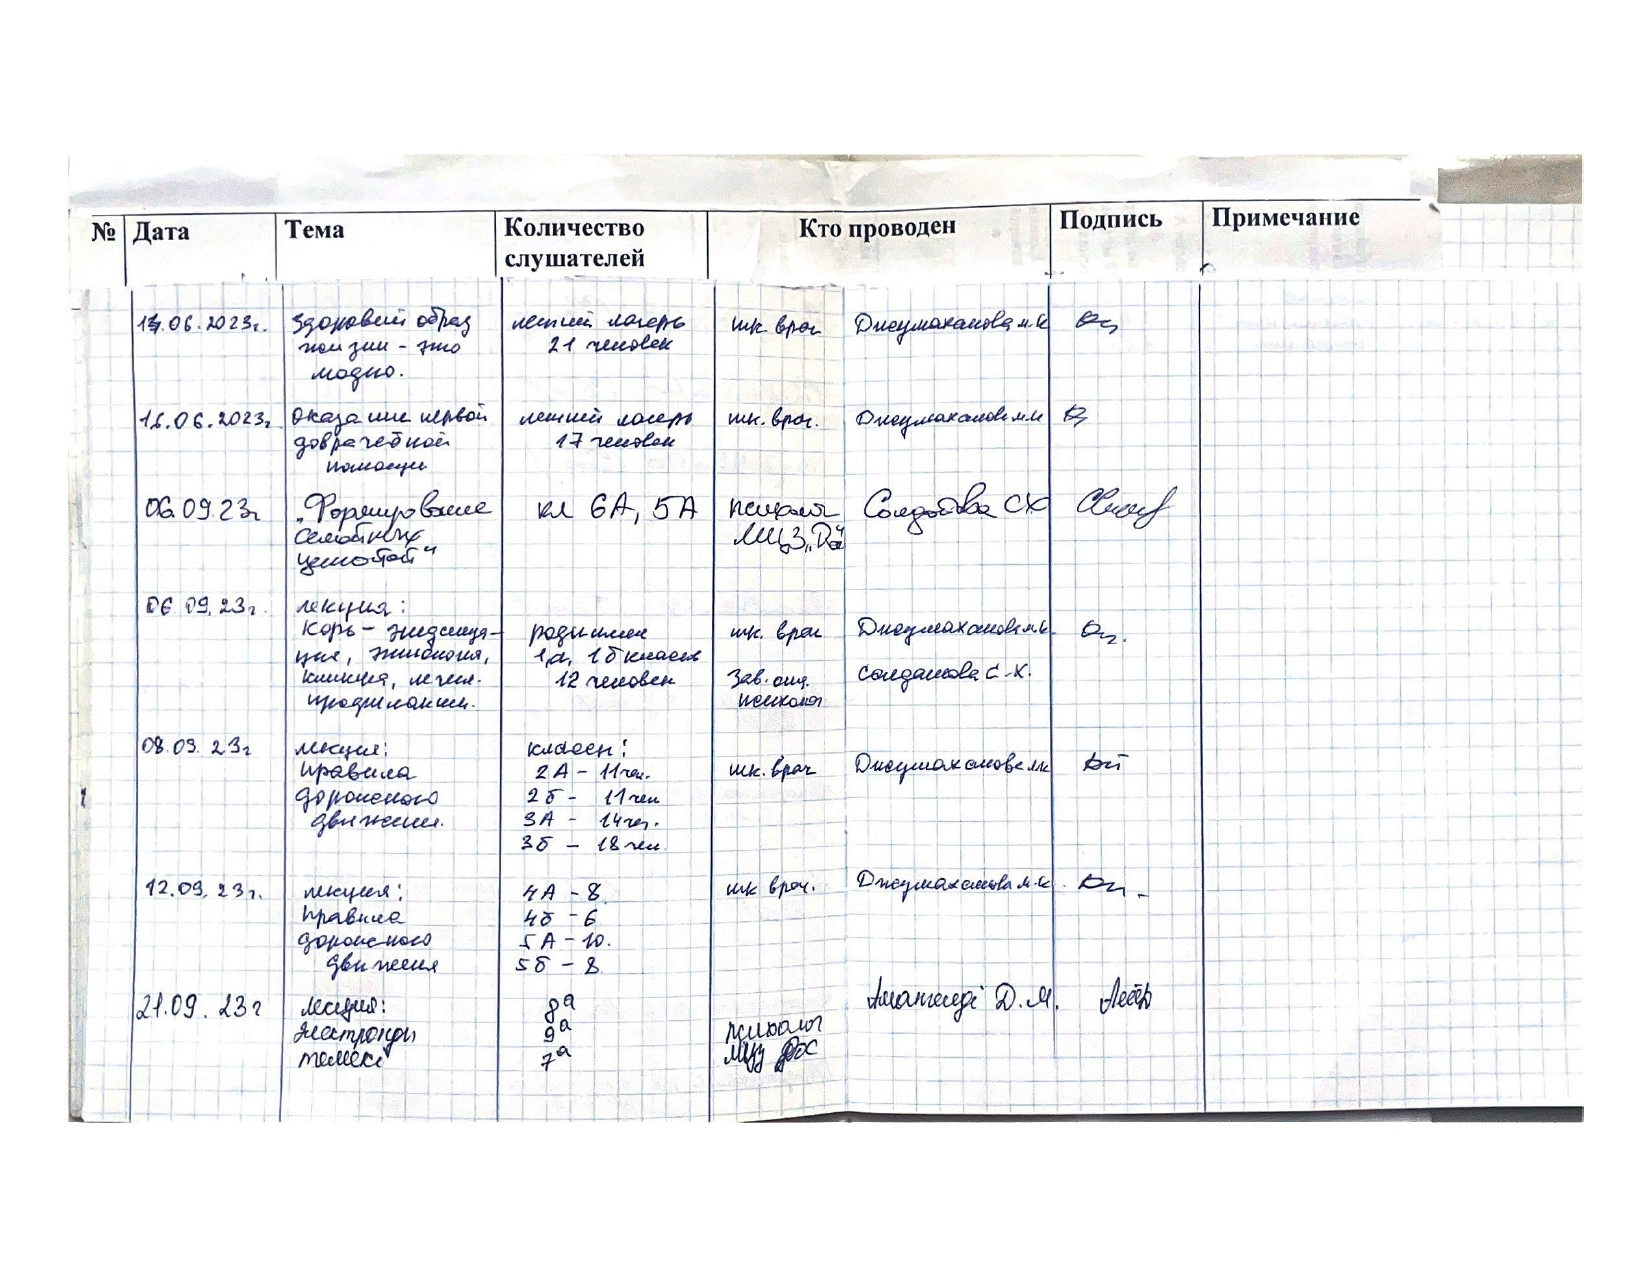 № Дата Тема Количество слушателей Кто проводен Подпись Примечание
06.2023г. Здоровый образ летний лагерь шк врач Джумаханова м.к
жизни - это 21 человек
модно.
16.06.2023г Оказание первой летний лагерь шк. врач. Джумаханова м.к
доврачебной 17 человек
помощи
06.09.23г „Формирование кл 6А, 5А психолог Солдатова СХ
семейных МЦЗ
ценностей“
06 09.23г. лекция:
Корь - этидемио- родители шк. врач Джумаханова м.к.
ция, этиология, 1а, 1б классов
клиника, лечен. 12 человек Зав. отд. Солдатова С-Х.
профилактик. психолог
08.09.23г лекция: классы:
Правила 2А - 11чел. шк. врач Джумаханова мк
дорожного 2б - 11чел
движения. 3А - 14чел.
3б - 18чел
12.09.23г. лекция: 4А - 8 шк врач. Джумаханова м.к.
Правила 4б - 6
дорожного 5А - 10.
движения 5б - 8
21.09.23г лекция: 8а Амангелді Д.М.
Электронды 9а психолог
темекі 7а мцз